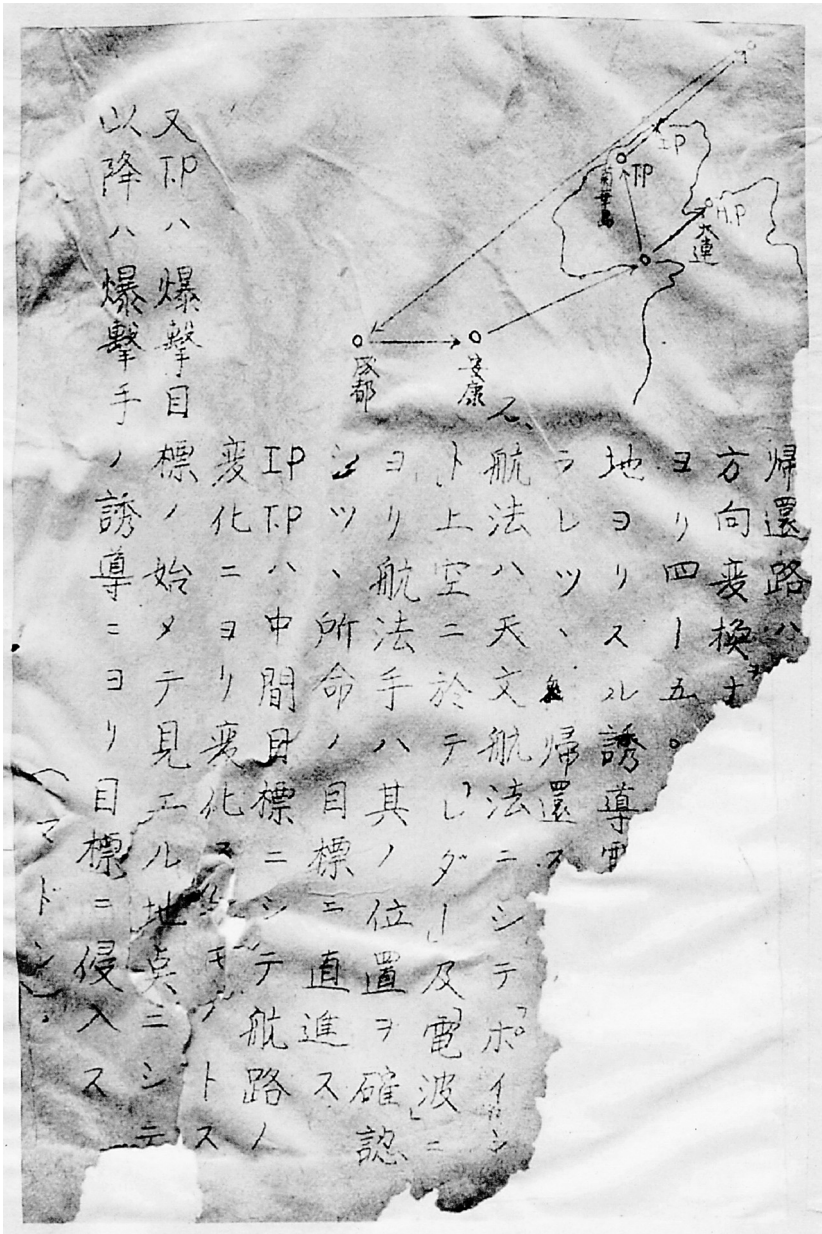 帰還路ハ
方向変換
ヨリ四ー五。
地ヨリスル誘導電
ラレツヽ 帰還ス
ス、航法ハ天文航法ニシテ「ポイン
ト」上空ニ於テ「レダー」及「電波」ニ
ヨリ航法手ハ其ノ位置ヲ確認
シツヽ所命ノ目標ニ直進ス
IP T.Pハ中間目標ニシテ航路ノ
変化ニヨリ変化スルモノトス
又T.Pハ爆撃目標ノ始メテ見エル地点ニシテ
以降ハ爆撃手ノ誘導ニヨリ目標ニ侵入ス
(マドン)
I.P
T.P
H.P
大連
成都
安康